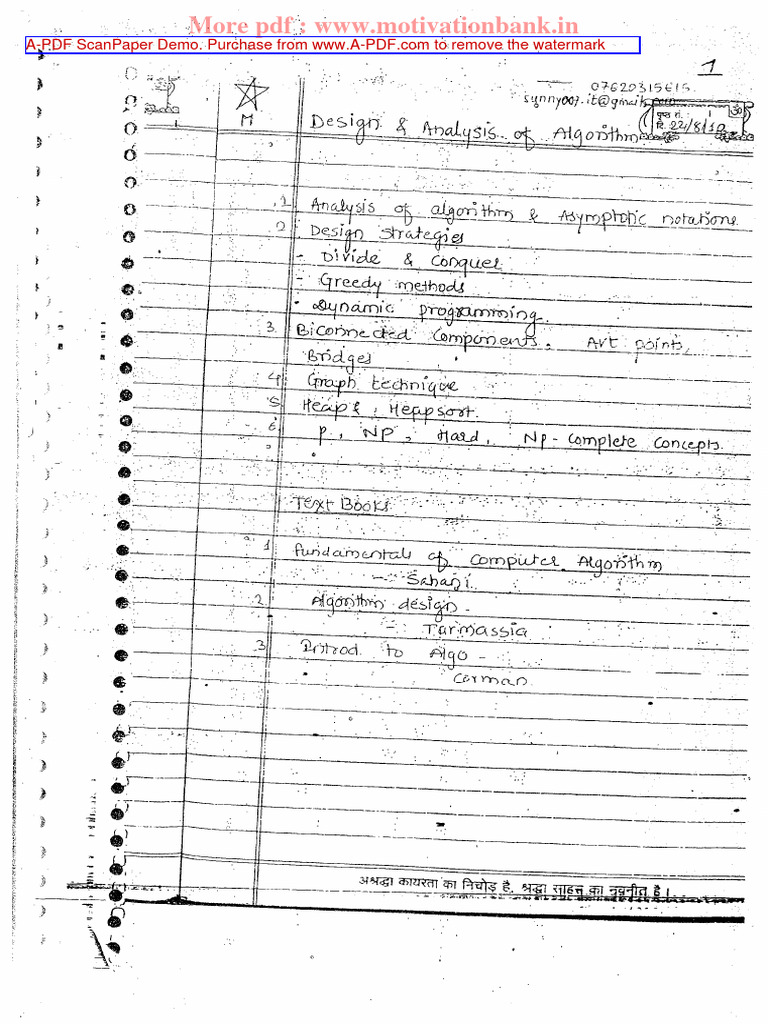 More pdf : www.motivationbank.in
A-PDF ScanPaper Demo. Purchase from www.A-PDF.com to remove the watermark
1
07620315615
sunny007.it@gmail.com
30
पृष्ठ सं. 1
दि. 22/8/10
M
Design & Analysis of Algorithm
1 Analysis of algorithm & Asymptotic notations
2 Design strategies
- Divide & Conquer
- Greedy methods
- Dynamic programming.
3. Biconnected Components, Art points,
Bridges
4 Graph technique
5 Heap & Heapsort.
6 P, NP, Hard, NP-Complete Concepts.
Text Books
1 Fundamentals of Computer Algorithm
- Sahani
2. Algorithm design -
- Tarmassia
3. Introd. to Algo -
Corman
अश्रद्धा कायरता का निचोड़ है, श्रद्धा साहस का नवनीत है।